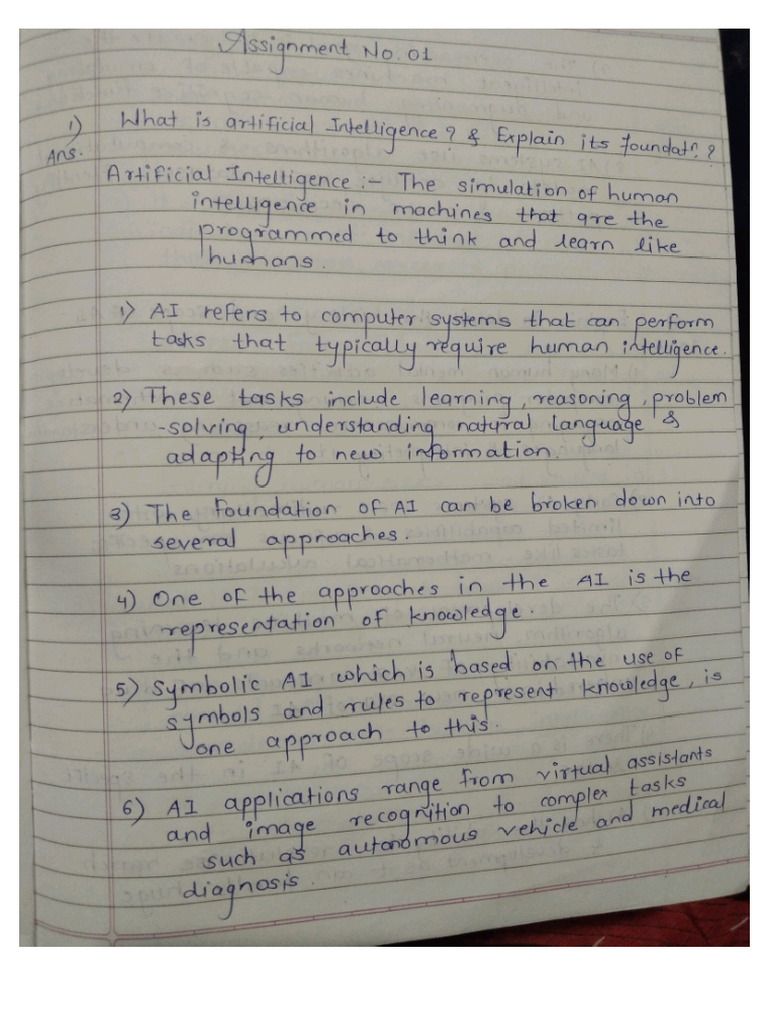 Assignment No. 01
1) What is artificial Intelligence? & Explain its foundatn. ?
Ans.
Artificial Intelligence :- The simulation of human
intelligence in machines that are the
programmed to think and learn like
humans.
1) AI refers to computer systems that can perform
tasks that typically require human intelligence.
2) These tasks include learning, reasoning, problem
-solving, understanding natural language &
adapting to new information.
3) The foundation of AI can be broken down into
several approaches.
4) One of the approaches in the AI is the
representation of knowledge.
5) Symbolic AI which is based on the use of
symbols and rules to represent knowledge, is
one approach to this.
6) AI applications range from virtual assistants
and image recognition to complex tasks
such as autonomous vehicle and medical
diagnosis.